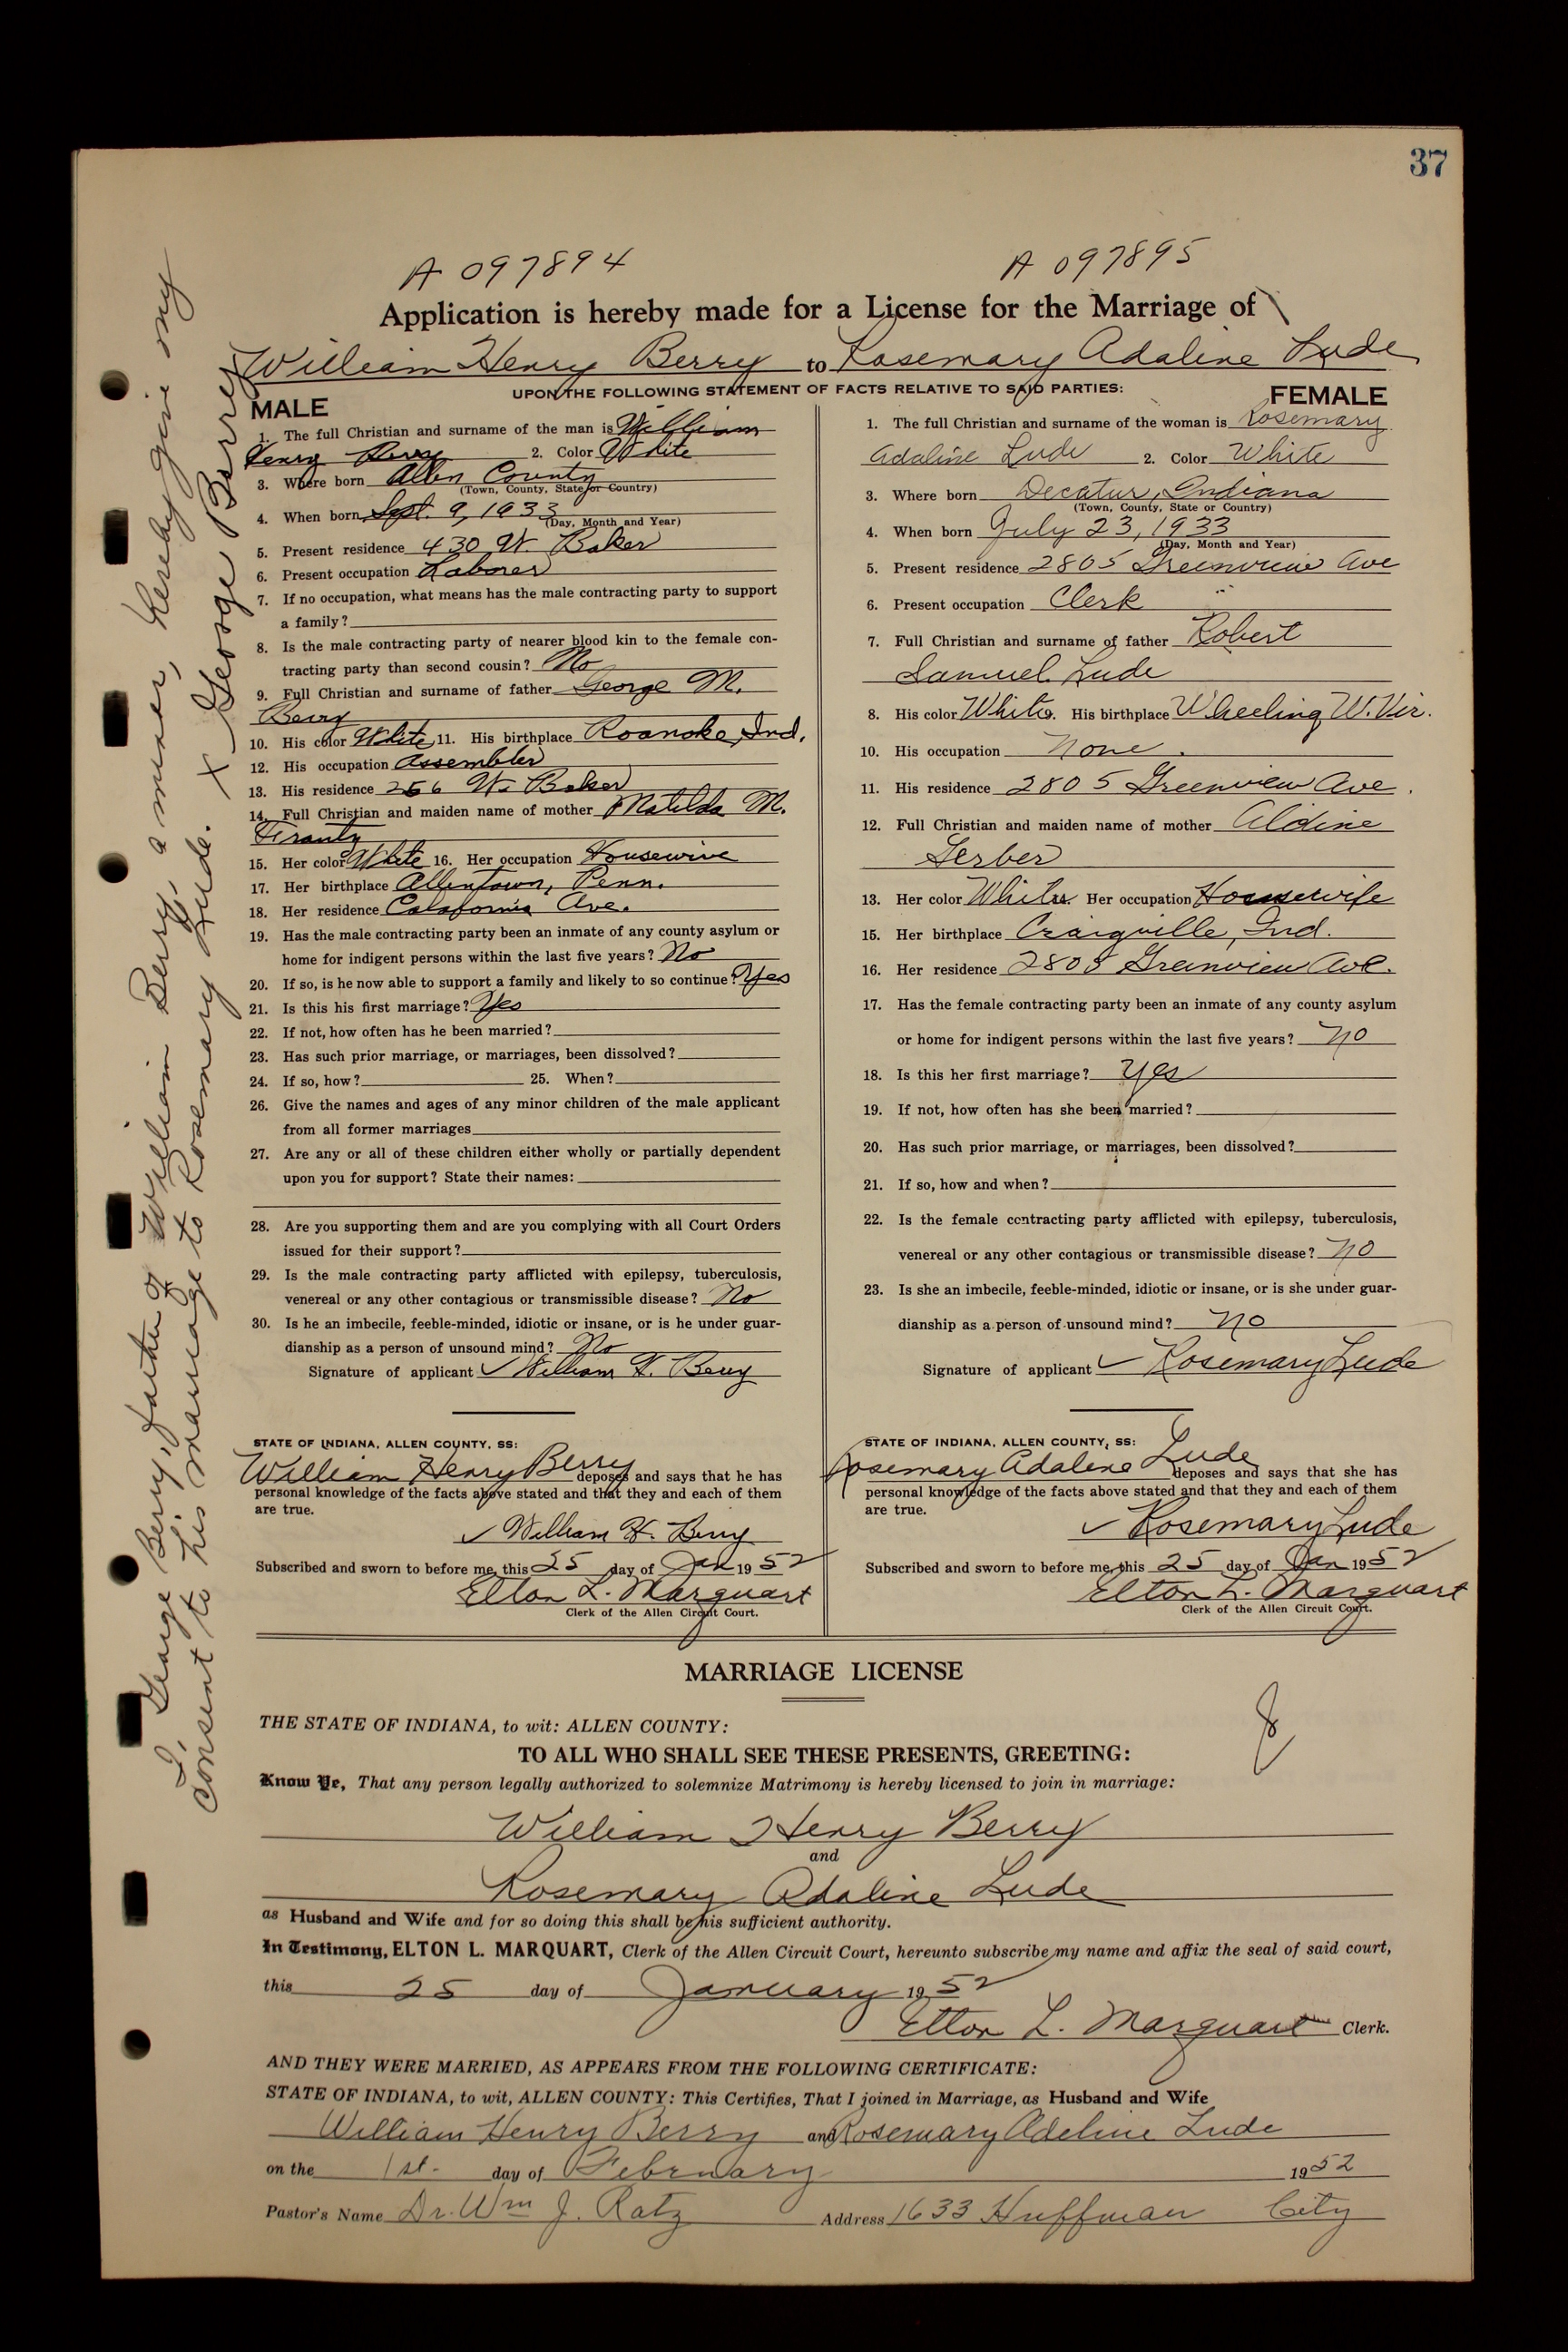 37
A 097894 A 097895
Application is hereby made for a License for the Marriage of
William Henry Berry to Rosemary Adaline Lude
UPON THE FOLLOWING STATEMENT OF FACTS RELATIVE TO SAID PARTIES:
MALE
1. The full Christian and surname of the man is William
Henry Berry 2. Color White
3. Where born Allen County
(Town, County, State or Country)
4. When born Sept. 9, 1933
(Day, Month and Year)
5. Present residence 430 W. Baker
6. Present occupation Laborer
7. If no occupation, what means has the male contracting party to support
a family?
8. Is the male contracting party of nearer blood kin to the female con-
tracting party than second cousin? No
9. Full Christian and surname of father George M.
Berry
10. His color White 11. His birthplace Roanoke, Ind.
12. His occupation Assembler
13. His residence 256 W. Baker
14. Full Christian and maiden name of mother Matilda M.
Frantz
15. Her color White 16. Her occupation Housewive
17. Her birthplace Allentown, Penn.
18. Her residence Calafornia Ave.
19. Has the male contracting party been an inmate of any county asylum or
home for indigent persons within the last five years? No
20. If so, is he now able to support a family and likely to so continue? Yes
21. Is this his first marriage? Yes
22. If not, how often has he been married?
23. Has such prior marriage, or marriages, been dissolved?
24. If so, how? 25. When?
26. Give the names and ages of any minor children of the male applicant
from all former marriages
27. Are any or all of these children either wholly or partially dependent
upon you for support? State their names:
28. Are you supporting them and are you complying with all Court Orders
issued for their support?
29. Is the male contracting party afflicted with epilepsy, tuberculosis,
venereal or any other contagious or transmissible disease? No
30. Is he an imbecile, feeble-minded, idiotic or insane, or is he under guar-
dianship as a person of unsound mind? No
Signature of applicant ✓ William H. Berry
STATE OF INDIANA, ALLEN COUNTY, SS:
William Henry Berry deposes and says that he has
personal knowledge of the facts above stated and that they and each of them
are true.
✓ William H. Berry
Subscribed and sworn to before me, this 25 day of Jan 1952
Elton L. Marquart
Clerk of the Allen Circuit Court.
FEMALE
1. The full Christian and surname of the woman is Rosemary
Adaline Lude 2. Color White
3. Where born Decatur, Indiana
(Town, County, State or Country)
4. When born July 23, 1933
(Day, Month and Year)
5. Present residence 2805 Greenview Ave
6. Present occupation Clerk
7. Full Christian and surname of father Robert
Samuel Lude
8. His color White 9. His birthplace Wheeling W. Vir.
10. His occupation None.
11. His residence 2805 Greenview Ave.
12. Full Christian and maiden name of mother Aldine
Gerber
13. Her color White 14. Her occupation Housewife
15. Her birthplace Craigville, Ind.
16. Her residence 2805 Greenview Ave.
17. Has the female contracting party been an inmate of any county asylum
or home for indigent persons within the last five years? No
18. Is this her first marriage? Yes
19. If not, how often has she been married?
20. Has such prior marriage, or marriages, been dissolved?
21. If so, how and when?
22. Is the female contracting party afflicted with epilepsy, tuberculosis,
venereal or any other contagious or transmissible disease? No
23. Is she an imbecile, feeble-minded, idiotic or insane, or is she under guar-
dianship as a person of unsound mind? No
Signature of applicant ✓ Rosemary Lude
STATE OF INDIANA, ALLEN COUNTY, SS:
Rosemary Adaline Lude deposes and says that she has
personal knowledge of the facts above stated and that they and each of them
are true.
✓ Rosemary Lude
Subscribed and sworn to before me, this 25 day of Jan 1952
Elton L. Marquart
Clerk of the Allen Circuit Court.
I, George Berry, father of William Berry, a minor, hereby give my
consent to his marriage to Rosemary Lude. X George Berry
MARRIAGE LICENSE
8
THE STATE OF INDIANA, to wit: ALLEN COUNTY:
TO ALL WHO SHALL SEE THESE PRESENTS, GREETING:
Know Ye, That any person legally authorized to solemnize Matrimony is hereby licensed to join in marriage:
William Henry Berry
and
Rosemary Adaline Lude
as Husband and Wife and for so doing this shall be his sufficient authority.
In Testimony, ELTON L. MARQUART, Clerk of the Allen Circuit Court, hereunto subscribe my name and affix the seal of said court,
this 25 day of January 1952
Elton L. Marquart Clerk.
AND THEY WERE MARRIED, AS APPEARS FROM THE FOLLOWING CERTIFICATE:
STATE OF INDIANA, to wit, ALLEN COUNTY: This Certifies, That I joined in Marriage, as Husband and Wife
William Henry Berry and Rosemary Adeline Lude
on the 1st. day of February 1952
Pastor's Name Dr. Wm J. Ratz Address 1633 Huffman City